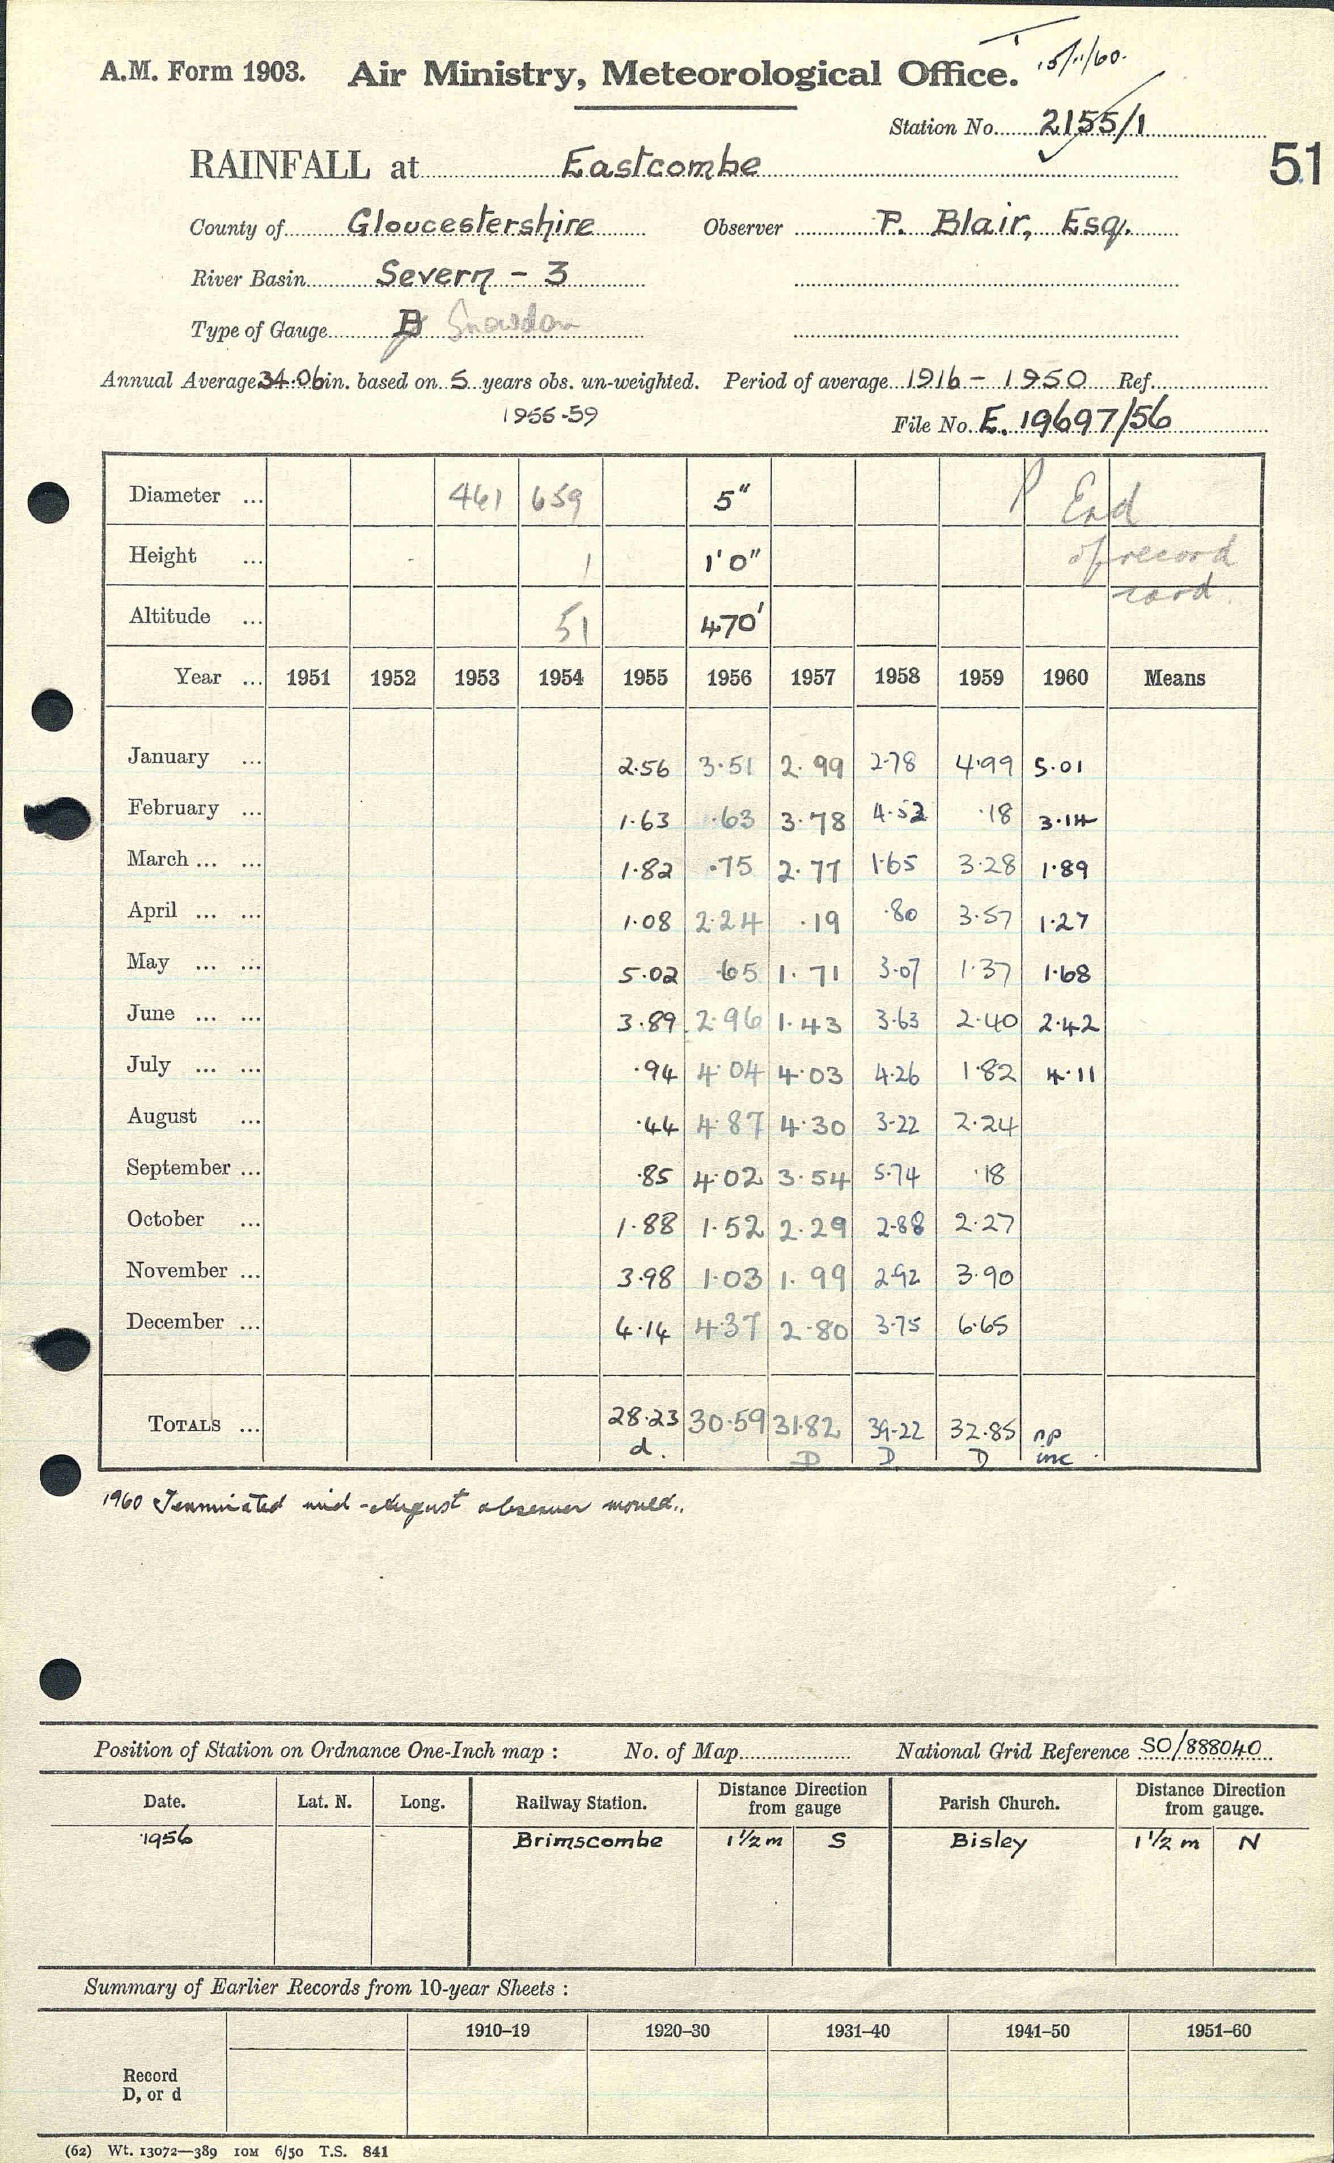 15/11/60.
A.M. Form 1903. Air Ministry, Meteorological Office.
Station No. 2155/1
51
RAINFALL at Eastcombe
County of Gloucestershire Observer P. Blair, Esq.
River Basin Severn - 3
Type of Gauge B Snowdon
Annual Average 34.06 in. based on 5 years obs. un-weighted. Period of average 1916 - 1950 Ref.
1955-59
File No. E. 19697/56
Diameter ... 461 659 5" End
Height ... 1 1'0" of record
card.
Altitude ... 51 470'
Year ... 1951 1952 1953 1954 1955 1956 1957 1958 1959 1960 Means
January ... 2.56 3.51 2.99 2.78 4.99 5.01
February ... 1.63 .63 3.78 4.52 .18 3.14
March ... ... 1.82 .75 2.77 1.65 3.28 1.89
April ... ... 1.08 2.24 .19 .80 3.57 1.27
May ... ... 5.02 .65 1.71 3.07 1.37 1.68
June ... ... 3.89 2.96 1.43 3.63 2.40 2.42
July ... ... .94 4.04 4.03 4.26 1.82 4.11
August ... .44 4.87 4.30 3.22 2.24
September ... .85 4.02 3.54 5.74 .18
October ... 1.88 1.52 2.29 2.88 2.27
November ... 3.98 1.03 1.99 2.92 3.90
December ... 4.14 4.37 2.80 3.75 6.65
TOTALS ... 28.23 30.59 31.82 39.22 32.85 np
d. D D D inc
1960 Terminated mid-August observer moved.
Position of Station on Ordnance One-Inch map : No. of Map National Grid Reference SO/888040
Date. Lat. N. Long. Railway Station. Distance Direction from gauge Parish Church. Distance Direction from gauge.
1956 Brimscombe 1 1/2 m S Bisley 1 1/2 m N
Summary of Earlier Records from 10-year Sheets :
1910–19 1920–30 1931–40 1941–50 1951–60
Record
D, or d
(62) Wt. 13072—389 10M 6/50 T.S. 841